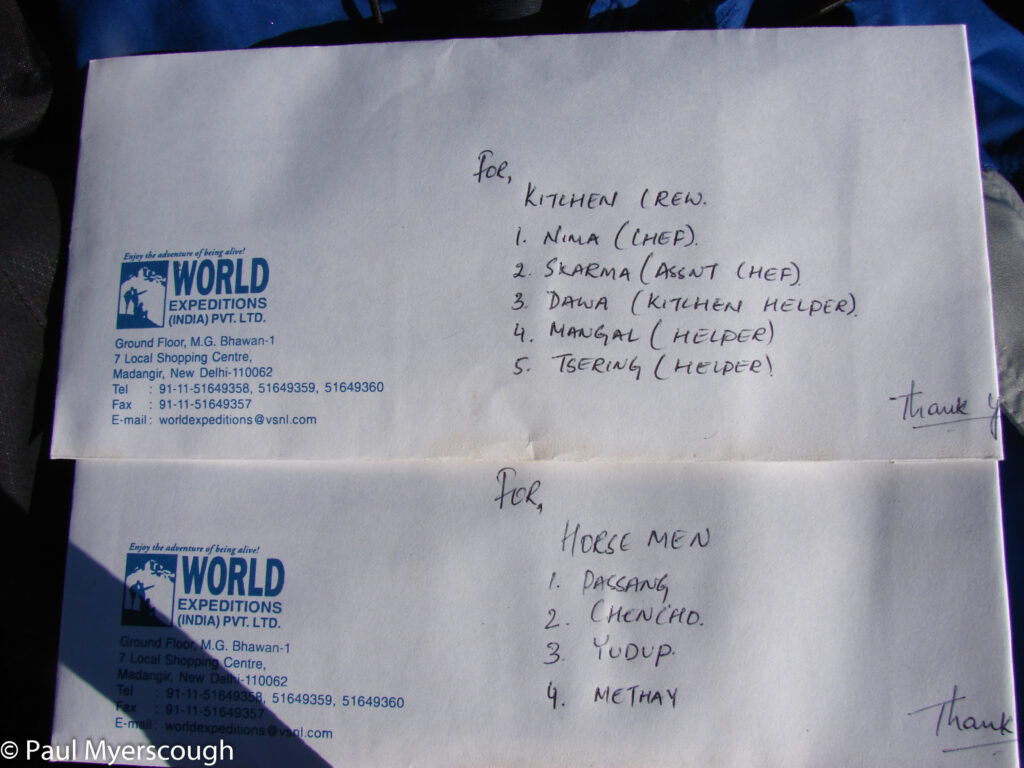 For,
KITCHEN CREW.
1. NIMA (CHEF).
2. SKARMA (ASSNT CHEF)
3. DAWA (KITCHEN HELPER).
4. MANGAL (HELPER)
5. TSERING (HELPER)
Thank y
Enjoy the adventure of being alive!
WORLD
EXPEDITIONS
(INDIA) PVT. LTD.
Ground Floor, M.G. Bhawan-1
7 Local Shopping Centre,
Madangir, New Delhi-110062
Tel : 91-11-51649358, 51649359, 51649360
Fax : 91-11-51649357
E-mail : worldexpeditions@vsnl.com
FOR,
HORSE MEN
1. PASSANG
2. CHENCHO.
3. YUDUP.
4. METHAY
Thank
Enjoy the adventure of being alive!
WORLD
EXPEDITIONS
(INDIA) PVT. LTD.
Ground Floor, M.G. Bhawan-1
7 Local Shopping Centre,
Madangir, New Delhi-110062
Tel : 91-11-51649358, 51649359, 51649360
Fax : 91-11-51649357
E-mail : worldexpeditions@vsnl.com
© Paul Myerscough